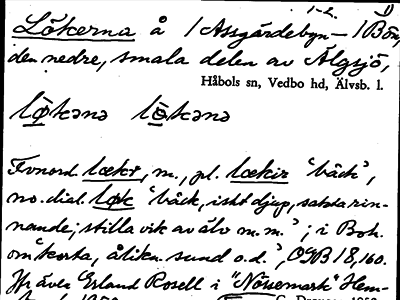 1-2. 1)
Lökerna å / Assgärdebyn – / Bön,
den nedre, smala delen av Älgsjö,
Håbols sn, Vedbo hd, Älvsb. l.
lø̀kənə lø̀kənə
Fvnord. lœkr, m., pl. lœkir ‘bäck’,
no. dial. løk ‘bäck, isht djup, sakta rin-
nande; stilla vik av älv m.m.’; i Boh.
om korta, ålikn. sund o.d.’, OGB 18, 160.
Jfr även Erland Rosell i "Nössemark" Hem-